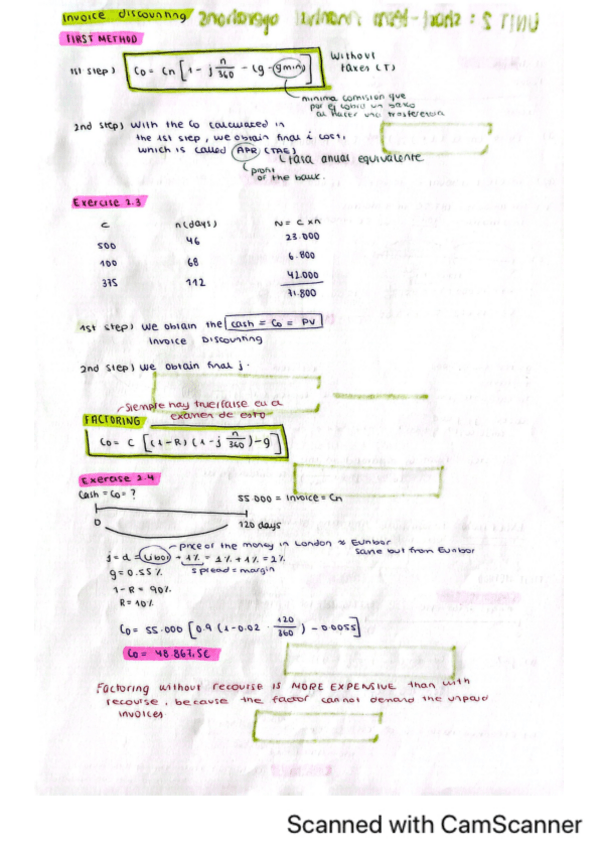 Invoice discounting
FIRST METHOD
1st step) Co = Cn [1 - j n/360 - (g - gmin)] Without taxes (T)
minima comision que
por el cobra un banco
al hacer una trasferencia
2nd step) With the Co calculated in
the 1st step, we obtain final i cost,
which is called APR (TAE)
tasa anual equivalente
profit
of the bank.
Exercise 2.3
C n (days) N = C x n
500 46 23.000
100 68 6.800
375 112 42.000
71.800
1st step) we obtain the cash = Co = PV
Invoice Discounting
2nd step) we obtain final j.
Siempre hay true/false en el
examen de esto
FACTORING
Co = C [(1-R) (1-j n/360) - g]
Exercise 2.4
Cash = Co = ? 55 000 = Invoice = Cn
0 120 days
price of the money in London ≈ Euribor
same but from Euribor
j = d = Libor + 1% = 1% + 1% = 2%
g = 0.55% spread = margin
1-R = 90%
R = 10%
Co = 55.000 [0.9 (1-0.02 · 120/360) - 0.0055]
Co = 48.867,5€
Factoring without recourse IS MORE EXPENSIVE than with
recourse, because the factor cannot demand the unpaid
invoices
Scanned with CamScanner